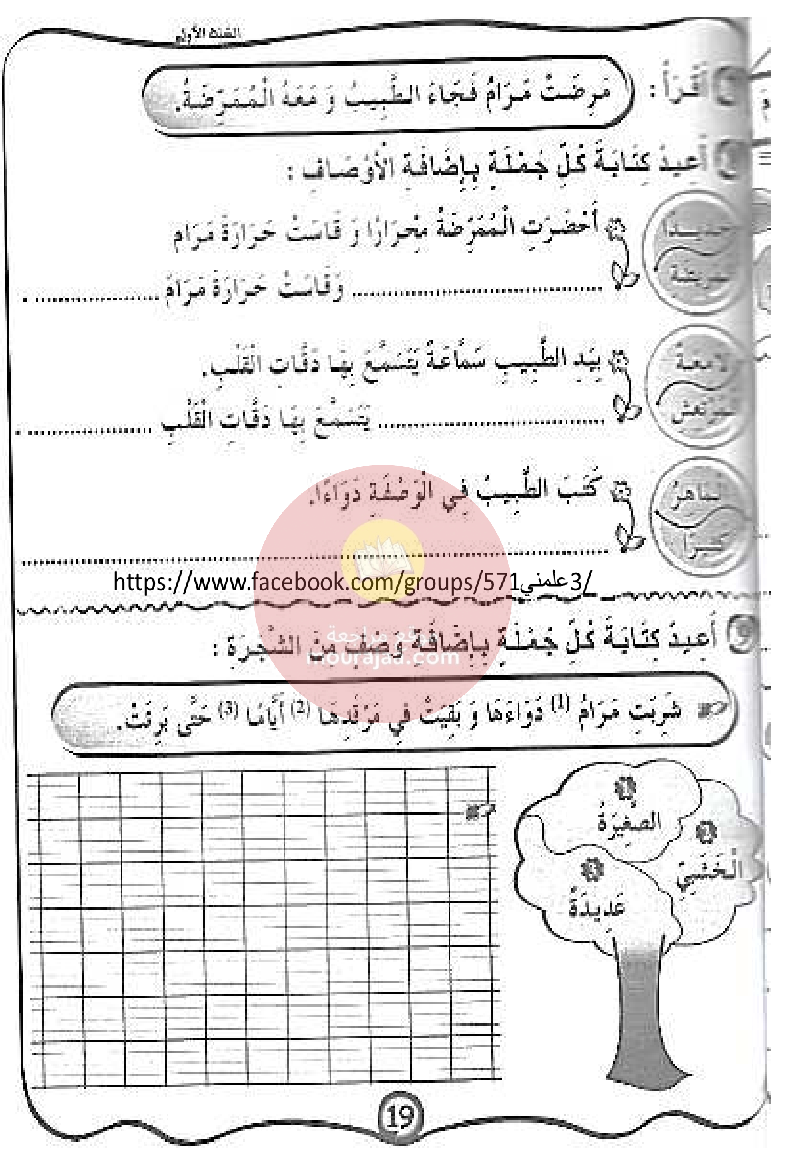 السنة الأولى
أَقْرَأُ : مَرِضَتْ مَرَامُ فَجَاءَ الطَّبِيبُ وَ مَعَهُ الْمُمَرِّضَةُ.
أُعِيدُ كِتَابَةَ كُلِّ جُمْلَةٍ بِإِضَافَةِ الْأَوْصَافِ :
جَدِيدًا
الْمَرِيضَةِ
أَحْضَرَتِ الْمُمَرِّضَةُ مِحْرَارًا وَ قَاسَتْ حَرَارَةَ مَرَام
................ وَقَاسَتْ حَرَارَةَ مَرَامَ ................ .
لَامِعَةٌ
الْمُرْتَعِشِ
بِيَدِ الطَّبِيبِ سَمَّاعَةٌ يَتَسَمَّعُ بِهَا دَقَّاتِ الْقَلْبِ.
................ يَتَسَمَّعُ بِهَا دَقَّاتِ الْقَلْبِ ................ .
الْمَاهِرُ
كَتَبَ الطَّبِيبُ فِي الْوَصْفَةِ دَوَاءً.
https://www.facebook.com/groups/571علمني3/
موقع مراجعة
mourajaa.com
9 أُعِيدُ كِتَابَةَ كُلِّ جُمْلَةٍ بِإِضَافَةِ وَصْفٍ مِنَ الشَّجَرَةِ :
شَرِبَتِ مَرَامُ (1) دَوَاءَهَا وَ بَقِيَتْ فِي مَرْقَدِهَا (2) أَيَّامًا (3) حَتَّى بَرِئَتْ.
1
الصَّغِيرَةُ
2
الْخَشَبِيِّ
3
عَدِيدَةً
19